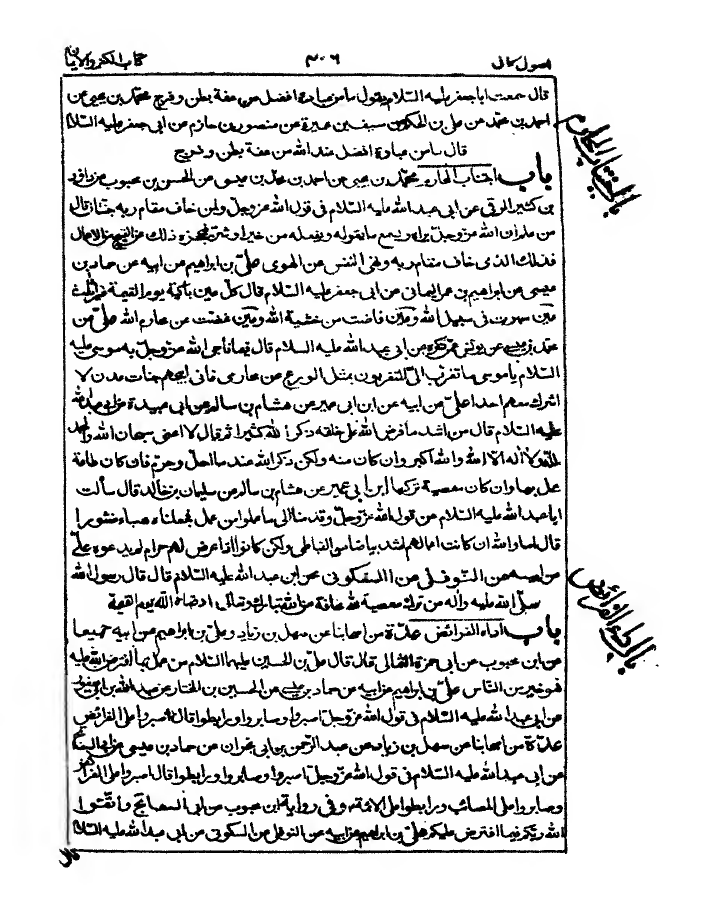 اصول كافى
٣٠٦
كتاب الكفر والايمان
قال سمعت ابا جعفر عليه السّلام يقول ما من عبادة افضل من عفة بطن وفرج محمّد بن يحيى عن
احمد بن محمّد عن على بن الحكم عن سيف بن عميرة عن منصور بن حازم عن ابى جعفر عليه السّلام
قال ما من عبادة افضل عند الله من عفة بطن وفرج
باب اجتناب المحارم محمّد بن يحيى عن احمد بن محمد بن عيسى عن الحسن بن محبوب عن داود
بن كثير الرقى عن ابى عبد الله عليه السّلام فى قول الله عزوجل ولمن خاف مقام ربه جنتان قال
من علم ان الله عزوجل يراه ويسمع ما يقوله ويفعله من خير او شر فيحجزه ذلك عن القبيح من الاعمال
فذلك الذى خاف مقام ربه ونهى النفس عن الهوى علىّ بن ابراهيم عن ابيه عن حماد بن
عيسى عن ابراهيم بن عمر اليمانى عن ابى جعفر عليه السّلام قال كلّ عين باكية يوم القيمة غير ثلث
عين سهرت فى سبيل الله وعين فاضت من خشية الله وعين غضت عن محارم الله علىّ عن
محمّد بن عيسى عن يونس عمن ذكره عن ابى عبد الله عليه السلام قال فيما ناجى الله عزوجلّ به موسى عليه
السّلام يا موسى ما تقرب الىّ المتقربون بمثل الورع عن محارمى فانى ابيحهم جنات عدن لا
اشرك معهم احدا علىّ عن ابيه عن ابن ابى عمير عن هشام بن سالم عن ابى عبيدة عن ابى عبد الله
عليه السّلام قال من اشد ما فرض الله على خلقه ذكر الله كثيرا ثم قال لا اعنى سبحان الله والحمد
لله ولا اله الا الله والله اكبر وان كان منه ولكن ذكر الله عند ما احلّ وحرّم فان كان طاعة
عمل بها وان كان معصية تركها ابن ابى عمير عن هشام بن سالم عن سليمان بن خالد قال سألت
ابا عبد الله عليه السلام عن قول الله عزّوجلّ وقدمنا الى ما عملوا من عمل فجعلناه هباء منثورا
قال اما والله ان كانت اعمالهم اشد بياضا من القباطى ولكن كانوا اذا عرض لهم حرام لم يدعوه علىّ
عن ابيه عن النّوفلى عن السكونى عن ابى عبد الله عليه السلام قال قال رسول الله
صلّى الله عليه واله من ترك معصية لله مخافة من الله تبارك وتعالى ارضاه الله يوم القيمة
باب اداء الفرائض عدّة من اصحابنا عن سهل بن زياد وعلىّ بن ابراهيم عن ابيه جميعا
عن ابن محبوب عن ابى حمزة الثمالى قال قال علىّ بن الحسين عليهما السّلام من عمل بما افترض الله عليه
فهو خير من النّاس علىّ بن ابراهيم عن ابيه عن حماد بن عيسى عن الحسين بن المختار عن عبد الله بن ابى يعفور
عن ابى عبد الله عليه السّلام فى قول الله عزّوجلّ اصبروا وصابروا ورابطوا قال اصبروا على الفرائض
عدّة من اصحابنا عن سهل بن زياد عن عبد الرّحمن بن ابى نجران عن حماد بن عيسى عن ابى السفاتج
عن ابى عبد الله عليه السّلام فى قول الله عزّوجلّ اصبروا وصابروا ورابطوا قال اصبروا على الفرائض
وصابروا على المصائب ورابطوا على الائمّة وفى رواية ابن محبوب عن ابى السفاتج واتّقوا
الله ربّكم فيما افترض عليكم علىّ بن ابراهيم عن ابيه عن النوفلى عن السكونى عن ابى عبد الله عليه السّلام
قال
باب اجتناب المحارم
باب اداء الفرائض